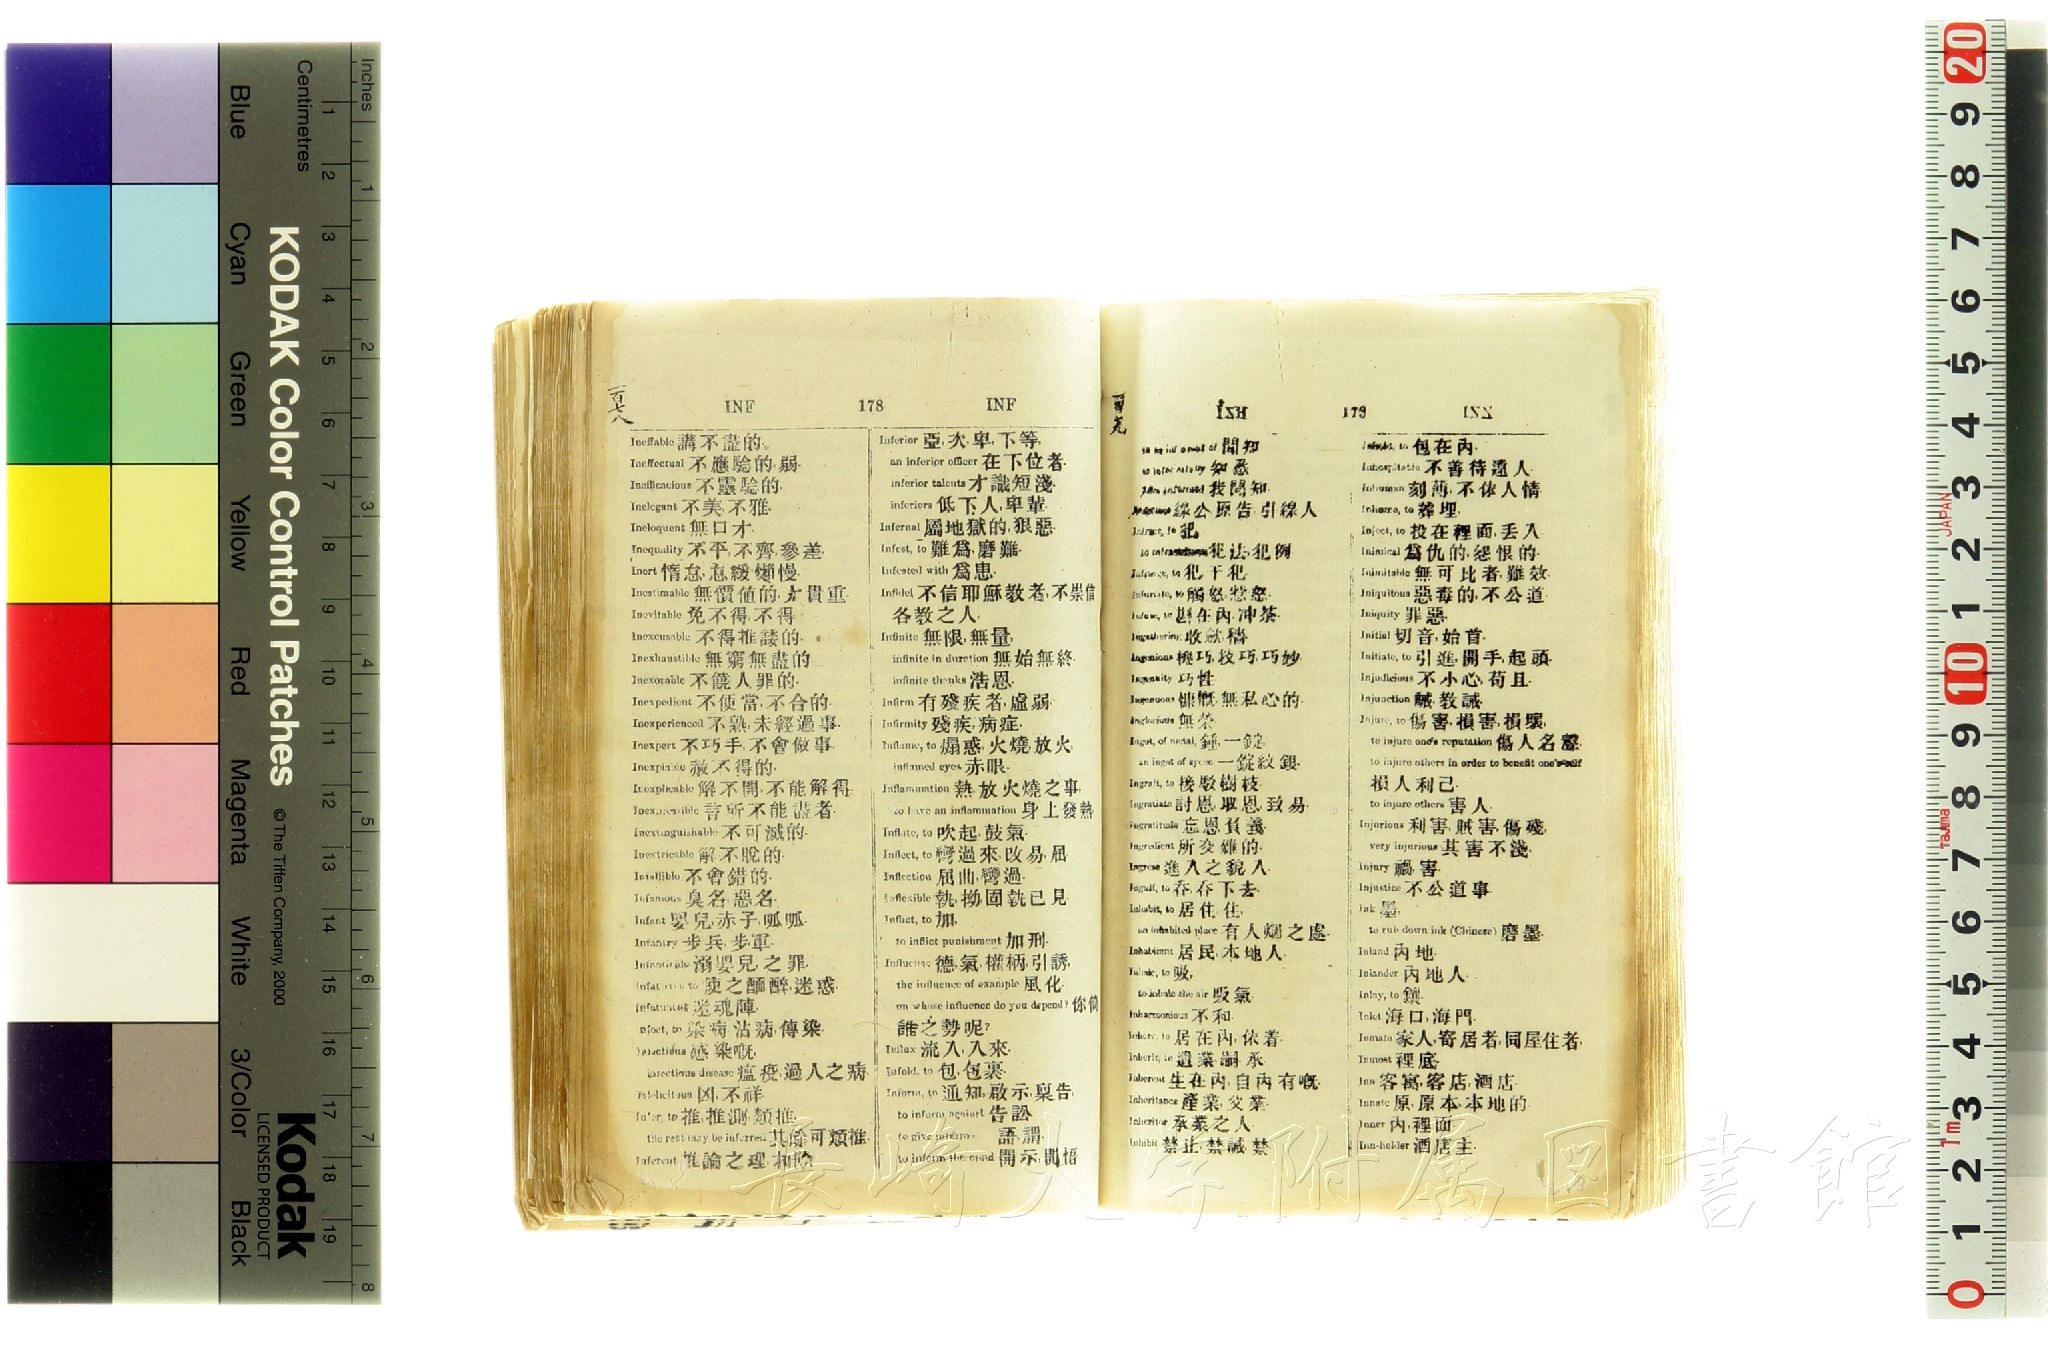 Inches
Centimetres
Blue
Cyan
Green
Yellow
Red
Magenta
White
3/Color
Black
KODAK Color Control Patches
© The Tiffen Company, 2000
Kodak
LICENSED PRODUCT
一百七八
INF 178 INF
Ineffable 講不盡的
Ineffectual 不應驗的,弱
Inefficacious 不靈驗的
Inelegant 不美,不雅
Ineloquent 無口才
Inequality 不平,不齊,參差
Inert 惰怠,怠緩,懶慢
Inestimable 無價値的,貴重
Inevitable 免不得,不得
Inexcusable 不得推諉的
Inexhaustible 無窮無盡的
Inexorable 不饒人罪的
Inexpedient 不便當,不合的
Inexperienced 不熟,未經過事
Inexpert 不巧手,不會做事
Inexpiable 赦不得的
Inexplicable 解不開,不能解得
Inexpressible 言所不能盡者
Inextinguishable 不可滅的
Inextricable 解不脫的
Infallible 不會錯的
Infamous 臭名,惡名
Infant 嬰兒,赤子,呱呱
Infantry 步兵,步軍
Infanticide 溺嬰兒之罪
使之酩酊,迷惑
Infatuated 迷魂陣
Infect, to 染病,沾病,傳染
Infectious 感染嘅
infectious disease 瘟疫,過人之病
Infelicitous 凶,不祥
Infer, to 推,推測,類推
the rest may be inferred 其餘可類推
推論之理
Inferior 亞,次,卑,下等
an inferior officer 在下位者
inferior talents 才識短淺
inferiors 低下人,卑輩
Infernal 屬地獄的,狠惡
Infest, to 難爲,磨難
Infested with 爲患
Infidel 不信耶穌教者,不崇信
各教之人
Infinite 無限,無量
infinite in duration 無始無終
infinite thanks 浩恩
Infirm 有殘疾者,虛弱
Infirmity 殘疾,病症
Inflame, to 煽惑,火燒,放火
inflamed eyes 赤眼
Inflammation 熱,放火燒之事
to have an inflammation 身上發熱
Inflate, to 吹起,鼓氣
Inflect, to 彎過來,改易,屈
Inflection 屈曲,彎過
Inflexible 執拗,固執己見
Inflict, to 加
to inflict punishment 加刑
Influence 德,氣,權柄,引誘
the influence of example 風化
on whose influence do you depend? 你倚
誰之勢呢?
Influx 流入,入來
Infold, to 包,包裹
Inform, to 通知,啟示,稟告
to inform against 告訟
語,謂
to inform the mind 開示,開悟
179
聞知
知悉
我聞知
線公,原告,引線人
犯
犯法,犯例
犯,干犯
觸怒,惹怒
Ingathering 收斂
Ingenious 機巧,技巧,巧妙
Ingenuity 巧性
Ingenuous 慷慨,無私心的
Inglorious 無榮
Ingot, of metal, 錘,一錠
an ingot of sycee 一錠紋銀
Ingraft, to 接駁樹枝
Ingratiate 討恩,取恩,致易
Ingratitude 忘恩負義
Ingredient 所交雜的
Ingress 進入之貌,入
Ingulf, to 吞,吞下去
Inhabit, to 居住,住
an inhabited place 有人烟之處
Inhabitant 居民,本地人
Inhale, to 吸
to inhale the air 吸氣
Inharmonious 不和
Inhere, to 居在內,依着
Inherit, to 遺業,嗣,承
Inherent 生在內,自內有嘅
Inheritance 產業,父業
Inheritor 承業之人
Inhibit 禁止,禁誡,禁
包在內
Inhospitable 不善待遠人
Inhuman 刻薄,不依人情
Inhume, to 葬埋
Inject, to 投在裡面,丟入
Inimical 爲仇的,怨恨的
Inimitable 無可比者,難效
Iniquitous 惡毒的,不公道
Iniquity 罪惡
Initial 切音,始首
Initiate, to 引進,開手,起頭
Injudicious 不小心,苟且
Injunction 誡,教誡
Injure, to 傷害,損害,損壞
to injure one's reputation 傷人名聲
to injure others in order to benefit one's self
損人利己
to injure others 害人
Injurious 利害,賊害,傷殘
very injurious 其害不淺
Injury 禍,害
Injustice 不公道事
Ink 墨
to rub down ink (Chinese) 磨墨
Inland 內地
Inlander 內地人
Inlay, to 鑲
Inlet 海口,海門
Inmate 家人,寄居者,同屋住者
Inmost 裡底
Inn 客寓,客店,酒店
Innate 原,原本,本地的
Inner 內,裡面
Inn-holder 酒店主
長崎大学附属図書館
JAPAN
Tajima
1m